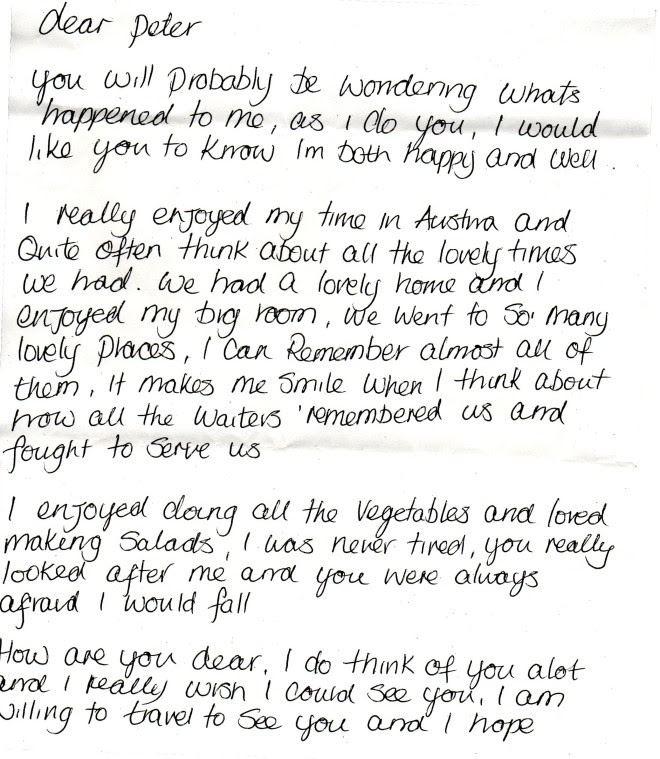 dear Peter
you will Probably be wondering whats
happened to me, as i do you, I would
like you to know Im both happy and well.
I really enjoyed my time in Austria and
Quite often think about all the lovely times
we had. We had a lovely home and I
enjoyed my big room, we went to so many
lovely Places, I can Remember almost all of
them, It makes me smile when I think about
how all the waiters remembered us and
fought to serve us
I enjoyed doing all the vegetables and loved
making Salads, I was never tired, you really
looked after me and you were always
afraid I would fall
How are you dear, I do think of you alot
and I really wish I could see you, I am
willing to travel to see you and I hope